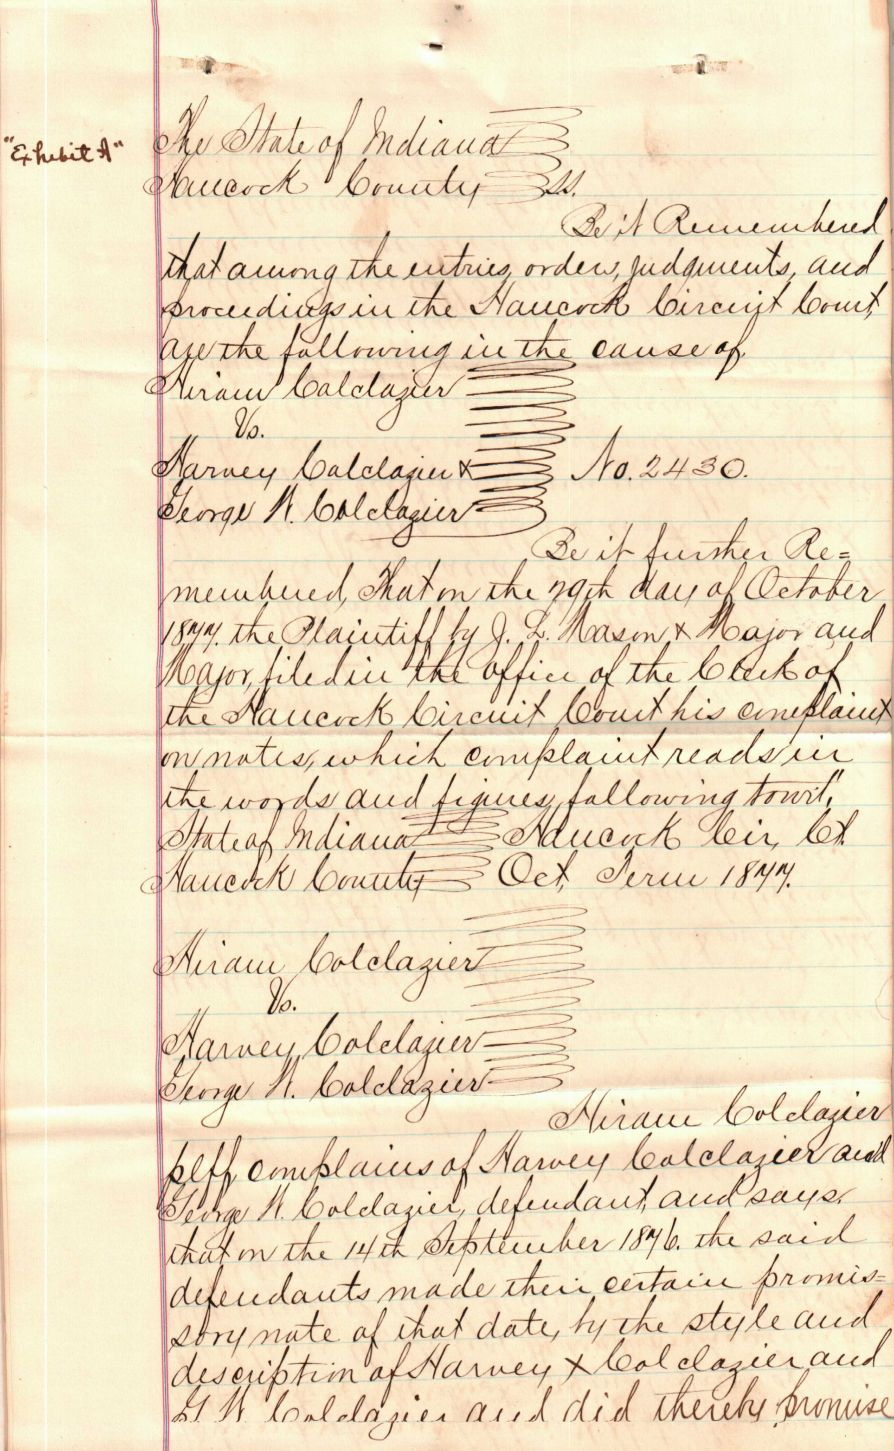 "Exhibit A"
The State of Indiana
Hancock County SS.
Be it Remembered
that among the entries, orders, judgments, and
proceedings in the Hancock Circuit Court,
are the following in the cause of
Hiram Colclazier
Vs.
Harvey Colclazier &
George W. Colclazier
No. 2430.
Be it further Re=
membered, That on the 29th day of October
1877. the Plaintiff by J. L. Mason & Major and
Major, filed in the office of the Clerk of
the Hancock Circuit Court his complaint
on notes, which complaint reads in
the words and figures, following towit",
State of Indiana Hancock Cir, Ct.
Hancock County Oct, Term 1877.
Hiram Colclazier
Vs.
Harvey Colclazier
George W. Colclazier
Hiram Colclazier
plff, complains of Harvey Colclazier and
George W. Colclazier, defendant, and says.
that on the 14th September 1876. the said
defendants made their certain promis=
sory note of that date, by the style and
description of Harvey X Colclazier and
G W Colclazier and did thereby promise